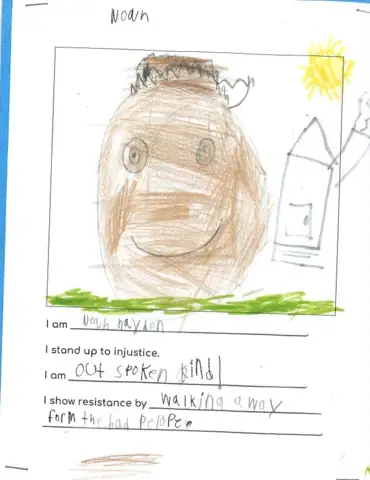 Noah
I am Noah hayden
I stand up to injustice.
I am out spoken kind
I show resistance by walking away
form the bad pelope